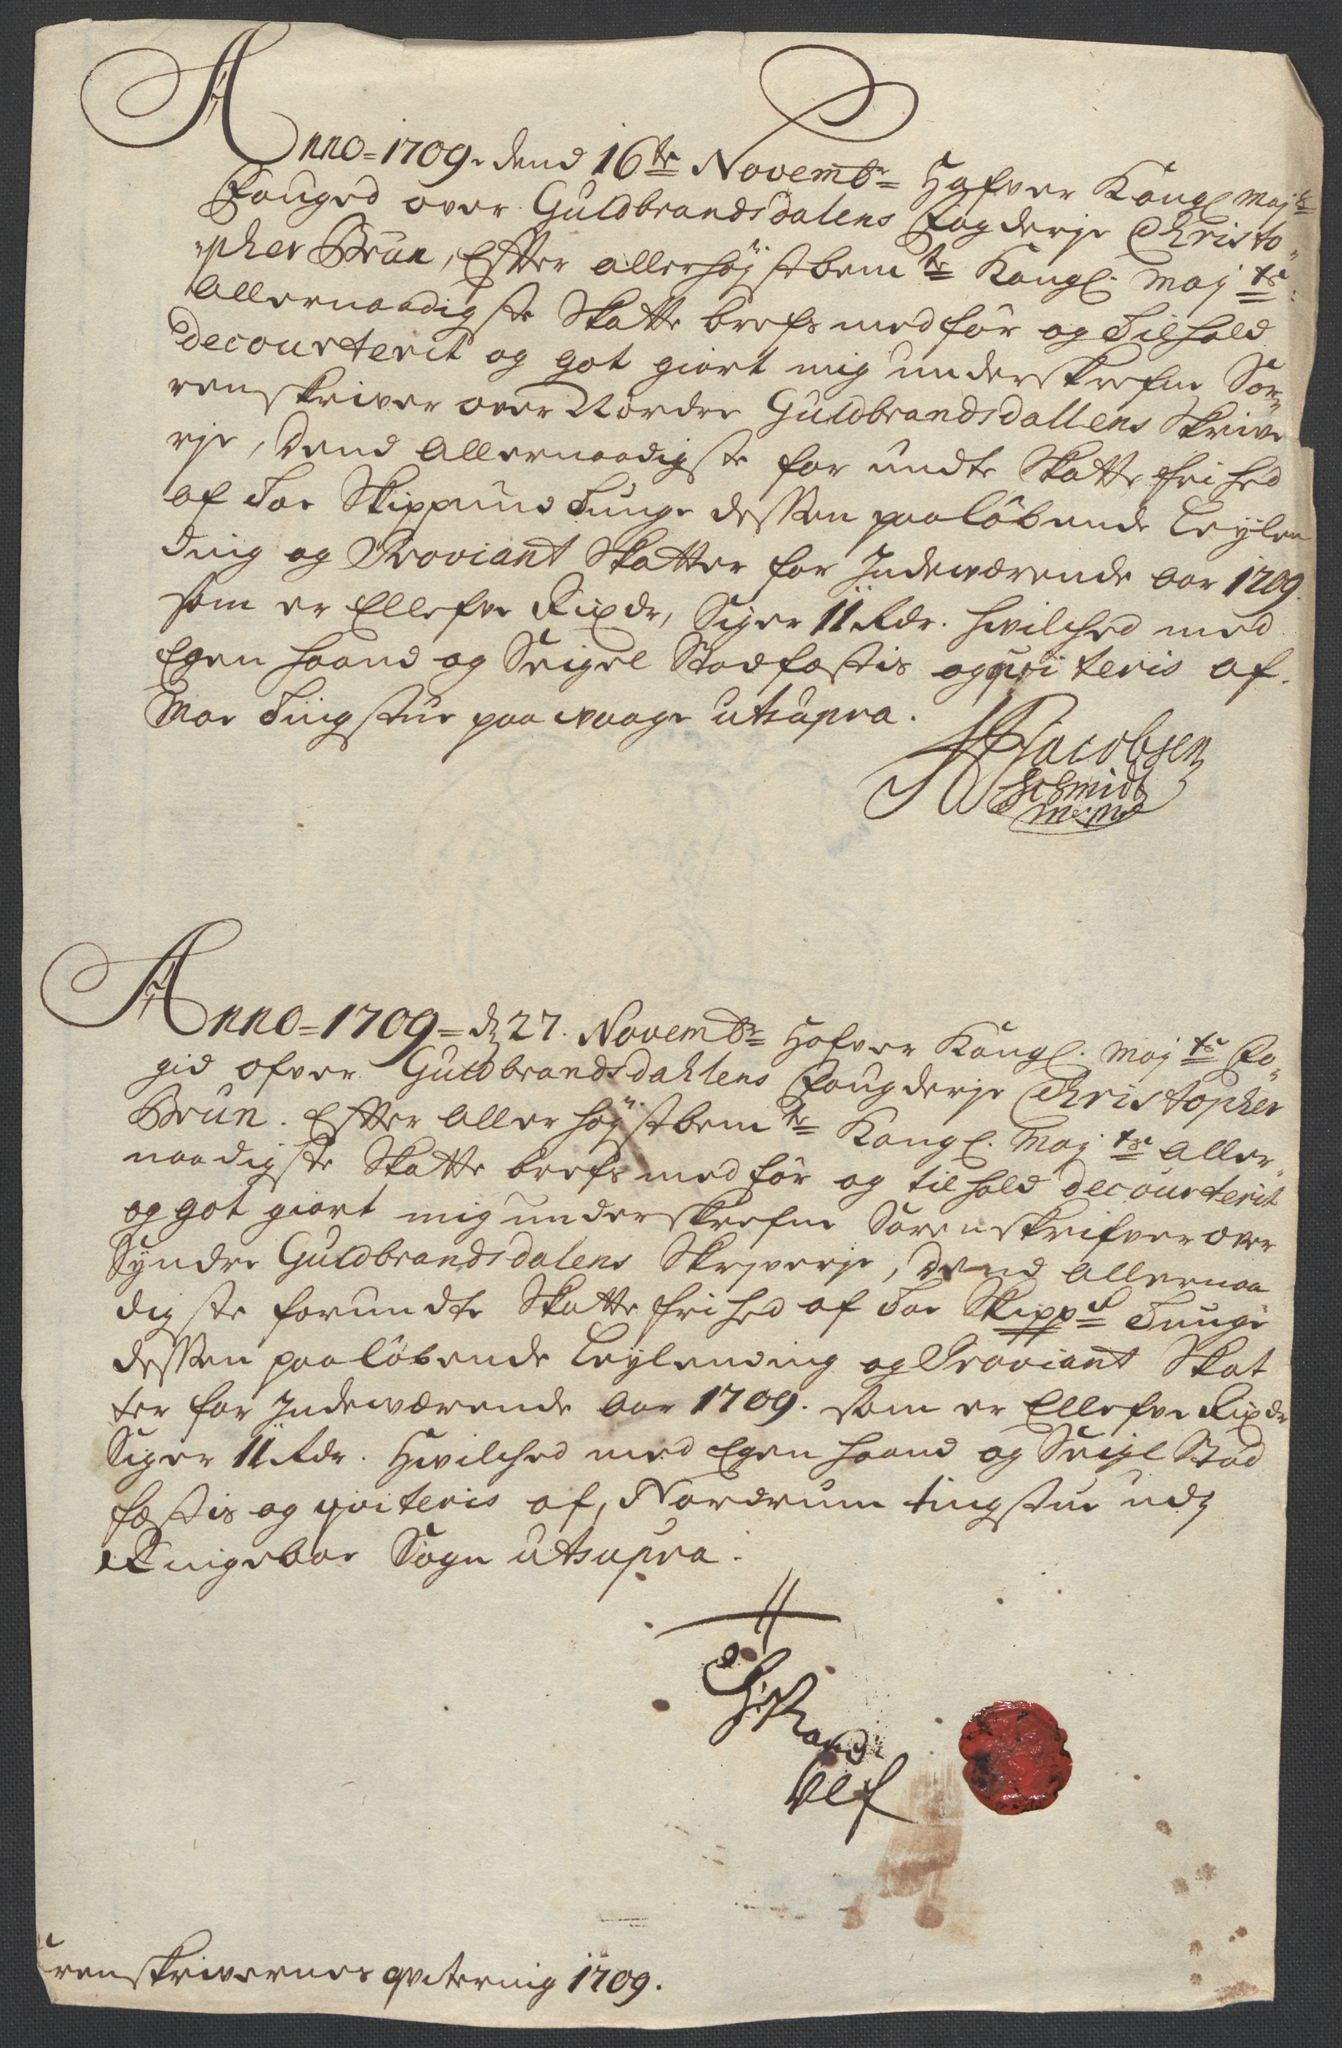 Anno=1709. dend 16te Novembr Hafver Kongl Mayts
Fouged over Guldbrandsdalens Fogderje Christo-
pher Brun, Efter allerhøystbemte Kongl. Mayts
Allernaadigste Skatte brefs medfør og Tilhold
decourterit og got giort mig underskrefne Sor-
renskriver over Nordre Guldbrandsdallens Skrive
rje, Dend Allernaadigste for undte Skatte frihed
af Toe Skippund Tunge dessen paaløbende Leylen
ding og Proviant Skatter for Indeværende Aar 1709.
som er Ellefve Rixdr, Siger 11 Rdr. Hvilched med
Egen Haand og Seigel Stadfæstis og qviteris af.
Moe Tingstue paa Waage ut supra.
Jacobsen
Schmidt
m: mp
Anno=1709=d 27. Novembr Hafver Kongl. Mayts Fo-
gid ofver Guldbrandsdahlens Fougderje Christopher
Brun. Efter Allerhøystbemte Kongl. Mayts Aller-
naadigste Skatte brefs medfør og tilhold decourterit
og got giort mig underskrefne Sorenskrifver over
Syndre Guldbrandsdalens Skrjverje, Dend Allernaa
digste forundte Skatte frihed af Toe Skippd Tunge
dessen paaløbende Leylending og Proviant Skat
ter for Indeværende Aar 1709. som er Ellefve Rixdr
Siger 11 Rdr. Hvilched med Egen Haand og Seigl Stad
fæstis og qviteris af, Nordrum tingstue udj
Ringeboe Sogn ut supra.
Ulf
renskrivernes qvitering 1709.